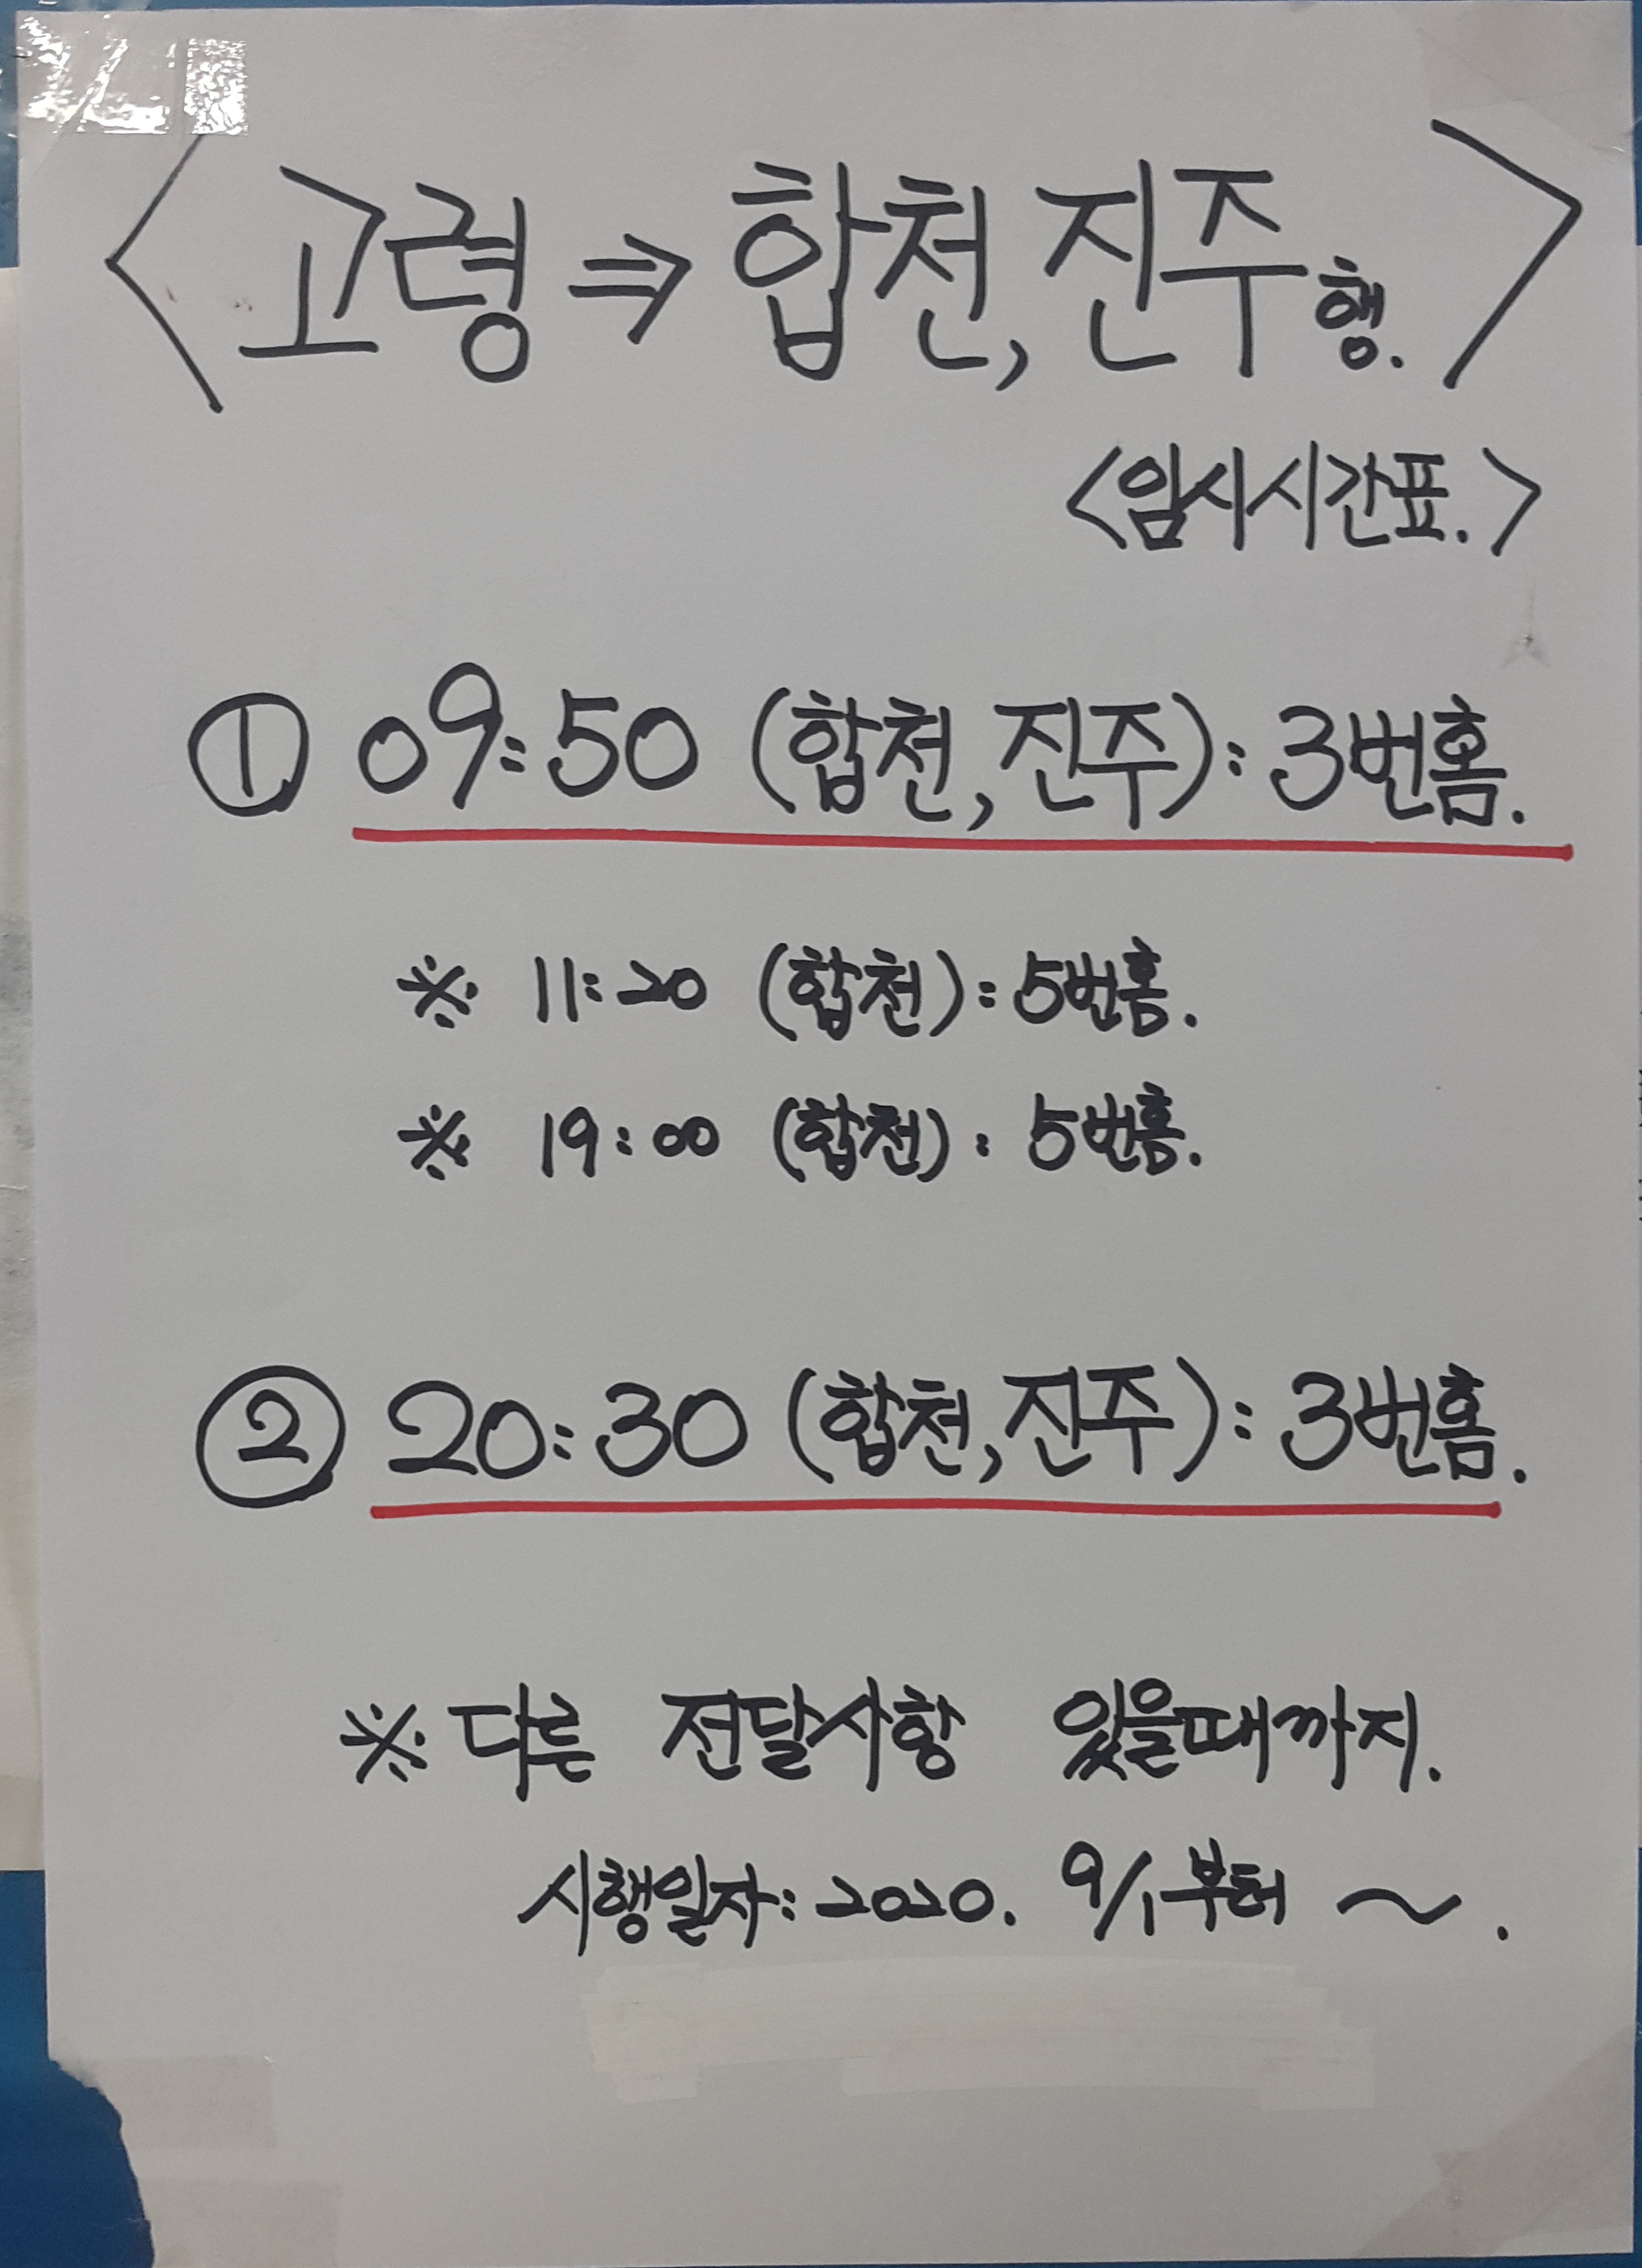 <고령 ⇒ 합천, 진주행.>
<임시시간표.>
① 09:50 (합천, 진주): 3번홈.
※ 11:20 (합천): 5번홈.
※ 19:00 (합천): 5번홈.
② 20:30 (합천, 진주): 3번홈.
※ 다른 전달사항 있을때까지.
시행일자: 2020. 9/1부터 ~.